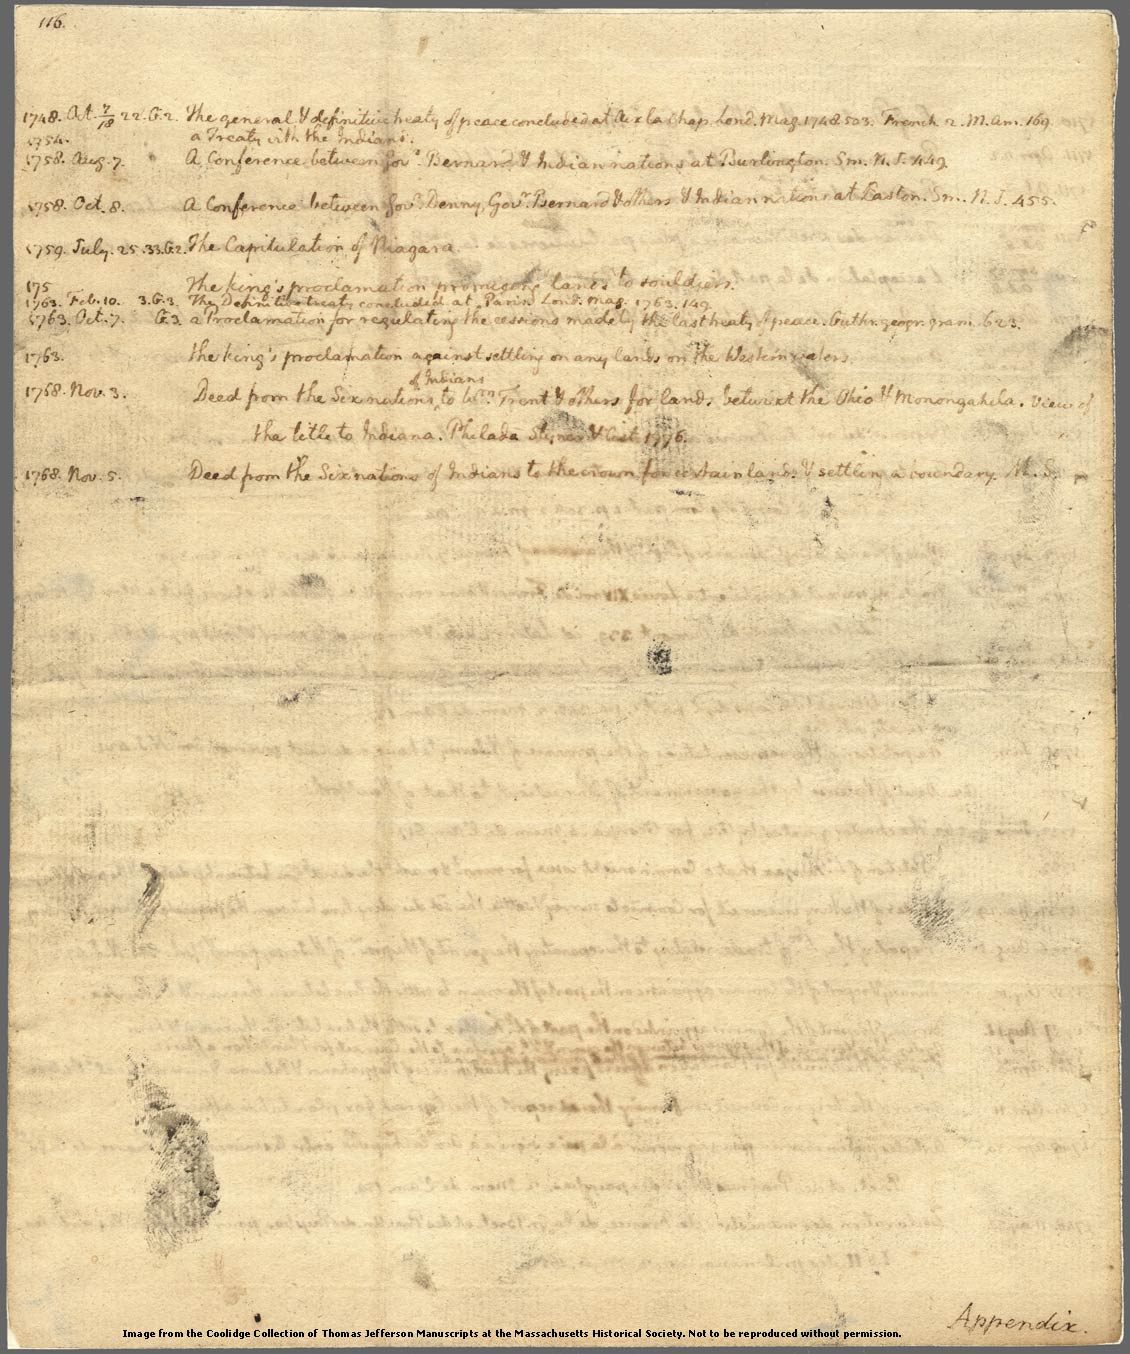 116.
1748. Oct. 7/18 22.G.2. The general & definitive treaty of peace concluded at Aix la Chap. Lond. Mag. 1748. 503. French 2. M. Am. 169.
1754. a Treaty with the Indians.
1758. Aug. 7. A Conference between Gov.r Bernard & Indian nations at Burlington. Sm. N. J. 449.
1758. Oct. 8. A Conference between Gov.r Denny, Gov.r Bernard & others & Indian nations at Easton. Sm. N. J. 455.
1759. July. 25. 33.G.2. The Capitulation of Niagara.
175 The king's proclamation promising lands to souldiers.
1763. Feb. 10. 3.G.3. The Definitive treaty concluded at Paris. Lond. Mag. 1763. 149.
1763. Oct. 7. G.3. a Proclamation for regulating the cessions made by the last treaty of peace. Guthr. geogr. gram. 623.
1763. the king's proclamation against settling on any lands on the Western waters.
of Indians
1768. Nov. 3. Deed from the Six nations to Wm. Trent & others for lands betwixt the Ohio & Monongahela. View of
the title to Indiana. Philada Styner & Cist. 1776.
1768. Nov. 5. Deed from the Six nations of Indians to the crown for certain lands & settling a boundary. M. S.
Appendix.
Image from the Coolidge Collection of Thomas Jefferson Manuscripts at the Massachusetts Historical Society. Not to be reproduced without permission.